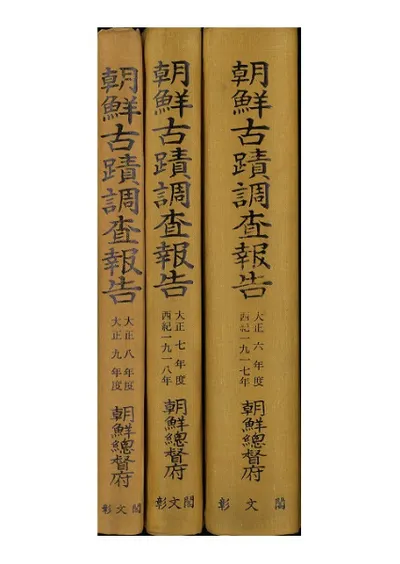 朝鮮古蹟調査報告
大正六年度
西紀一九一七年
朝鮮總督府
彰文閣
朝鮮古蹟調査報告
大正七年度
西紀一九一八年
朝鮮總督府
彰文閣
朝鮮古蹟調査報告
大正八年度
大正九年度
朝鮮總督府
彰文閣